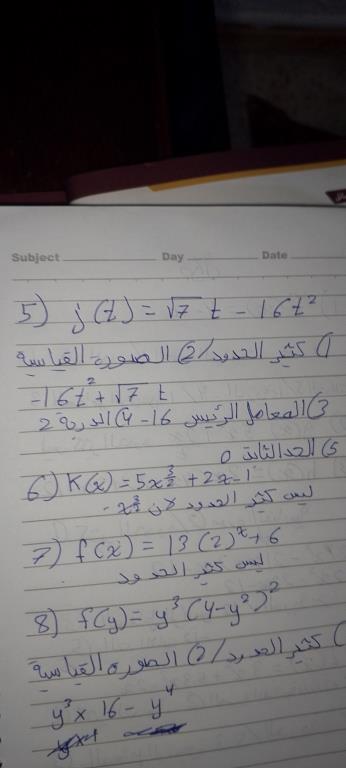 Subject Day Date
5) j(t) = √7 t - 16t²
1) كثير الحدود / 2) الصورة القياسية
-16t² + √7 t
3) المعامل الرئيس 16- 4) الدرجة 2
5) الحد الثابت 0
6) K(x) = 5x^3/2 + 2x - 1
ليس كثير الحدود لان x^3/2 -
7) f(x) = 13(2)^x + 6
ليس كثير الحدود
8) f(y) = y³(4-y²)²
1) كثير الحدود / 2) الصورة القياسية
y³ x 16 - y⁴